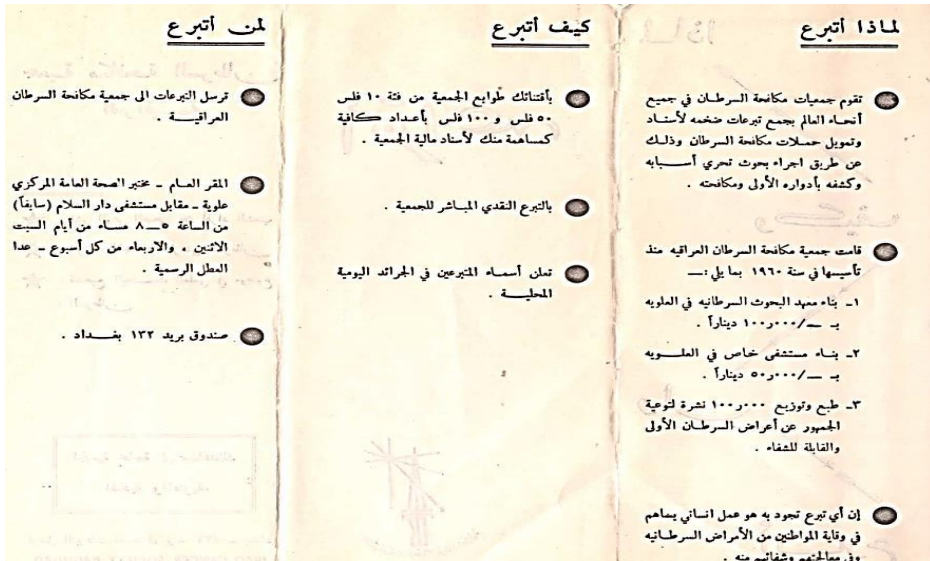 لماذا أتبرع
تقوم جمعيات مكافحة السرطــان في جميع
أنحــاء العالم بجمع تبرعات ضخمه لأسنــاد
وتمويل حمــلات مكافحة السرطان وذلــك
عن طريق اجراء بحوث تحري أســـبابه
وكشفه بأدواره الأولى ومكافحته .
قامت جمعية مكافحة السرطان العراقيه منذ
تأسيسها في سنة ١٩٦٠ بما يلي :ــ
١ـ بناء معهد البحوث السرطانيه في العلويه
بـ ــ/١٠٠ر٠٠٠ ديناراً .
٢ـ بنـاء مستشفى خاص في العلــــويه
بـ ــ/٥٠ر٠٠٠ ديناراً .
٣ـ طبع وتوزيـع ١٠٠ر٠٠٠ نشرة لتوعية
الجمهور عن أعراض السرطــان الأولى
والقابلة للشفاء .
إن أي تبرع تجود به هو عمل انساني يساهم
في وقاية المواطنين من الأمراض السرطــانيه
وفي معالجتهم وشفائهم منه .
كيف أتبرع
بأقتنائك طوابع الجمعية من فئة ١٠ فلس
٥٠ فلس و ١٠٠ فلس بأعـداد كــافية
كمساهمة منك لأسناد مالية الجمعية .
بالتبرع النقدي المباشر للجمعية .
تعلن أسمــاء المتبرعين في الجرائد اليومية
المحليـــة .
لمن أتبرع
ترسل التبرعات الى جمعية مكافحة السرطان
العراقيـــة .
المقر العـام ـ مختبر الصحة العامة المركزي
علوية ـ مقابل مستشفى دار السلام (سابقاً)
من الساعة ٥ــ٨ مســاء من أيام السبت
الاثنين ، والاربعاء من كل أسبوع ـ عدا
العطل الرسمية .
صندوق بريد ١٣٢ بغـــداد .